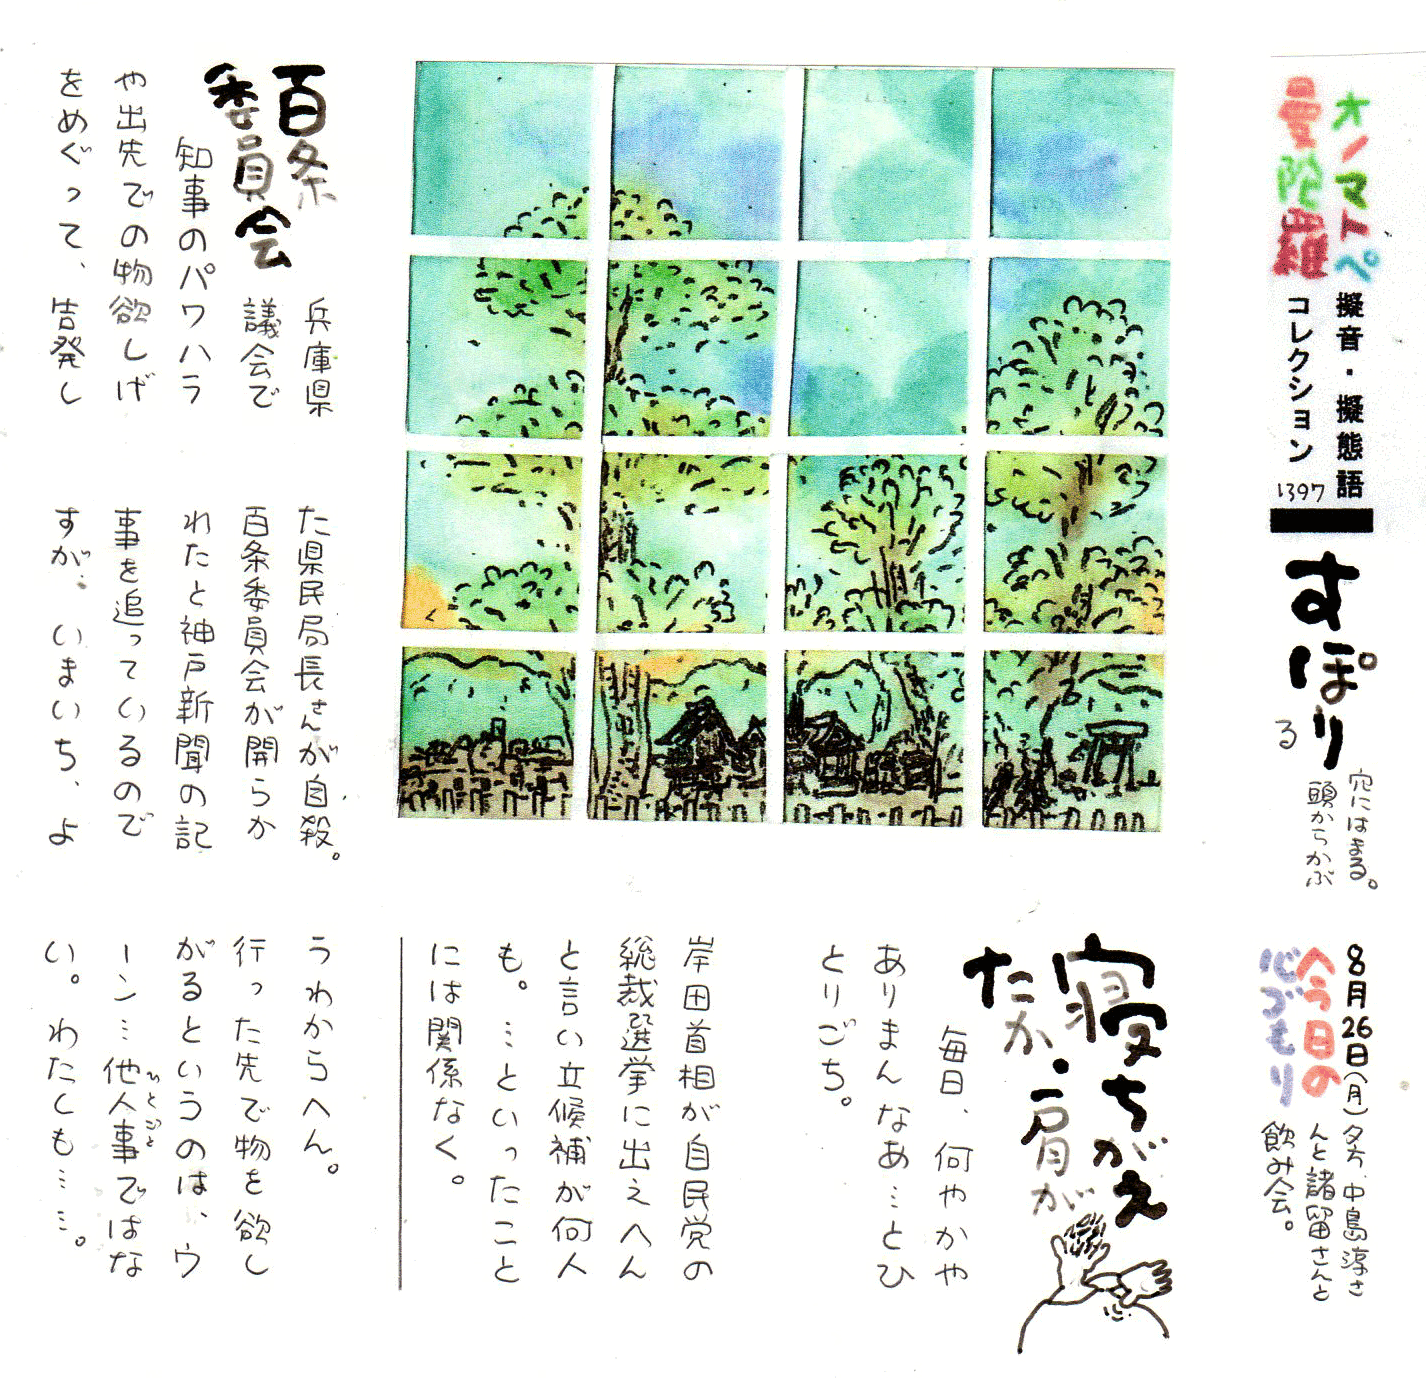 オノマトペ
曼陀羅
擬音・擬態語
コレクション
1397
すぽり
穴にはまる。
頭からかぶ
る
8月26日(月)夕方、中島淳さ
んと諸留さんと
飲み会。
今日の
心づもり
寝ちがえ
たか・肩が
毎日、何やかや
ありまんなあ…とひ
とりごち。
岸田首相が自民党の
総裁選挙に出えへん
と言い立候補が何人
も。…といったこと
には関係なく。
百条
委員会
兵庫県
議会で
知事のパワハラ
や出先での物欲しげ
をめぐって、告発し
た県民局長さんが自殺。
百条委員会が開らか
れたと神戸新聞の記
事を追っているので
すが、いまいち、よ
うわからへん。
行った先で物を欲し
がるというのは、ウ
ーン…他人事ではな
ひとごと
い。わたしも……。